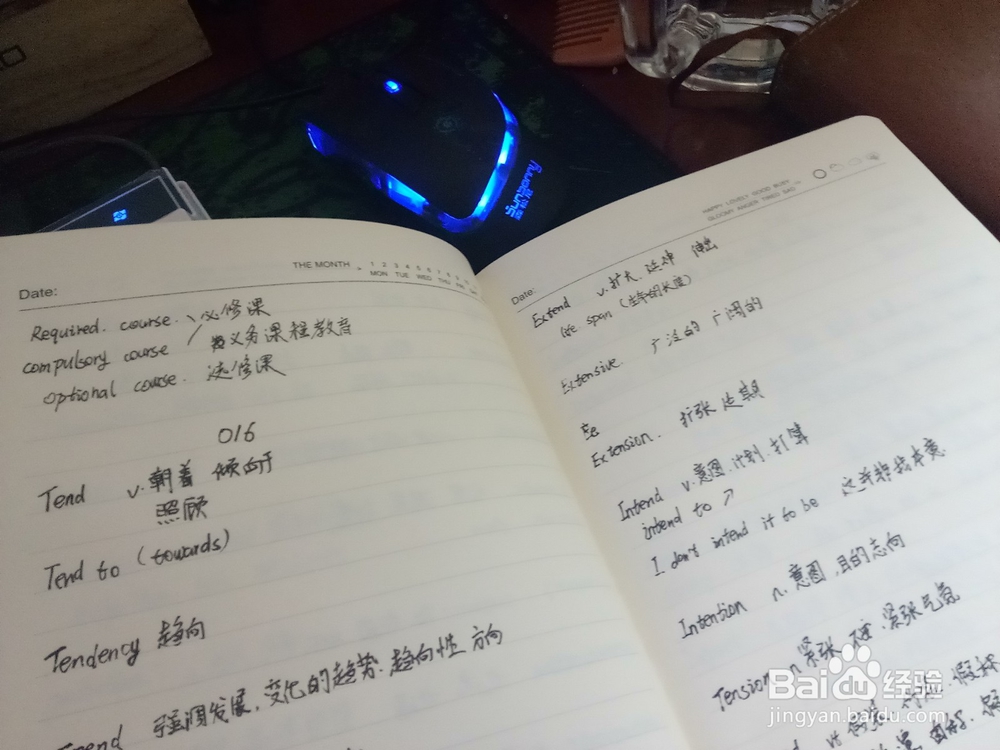 THE MONTH
1 2 3 4 5 6 7 8 9
MON TUE WED THU FRI SAT
Date:
Required. course. 必修课
compulsory course 义务课程教育
optional course. 选修课
016
Tend v. 朝着 倾向于
照顾
Tend to (towards)
Tendency 趋向
Trend 强调发展,变化的趋势.趋向性 方向
HAPPY LOVELY GOOD BUSY
GLOOMY ANGER TIRED SAD
Date:
Extend v. 扩大.延伸 伸出
life span (生命的长度)
Extensive. 广泛的 广阔的
Extension. 扩张
Intend v. 意图.计划.打算
intend to ↗
I don't intend it to be 这并非我本意
Intention n. 意图,目的志向
Tension n 紧张 紧张气氛
Sunsonny
Baidu 经验
jingyan.baidu.com